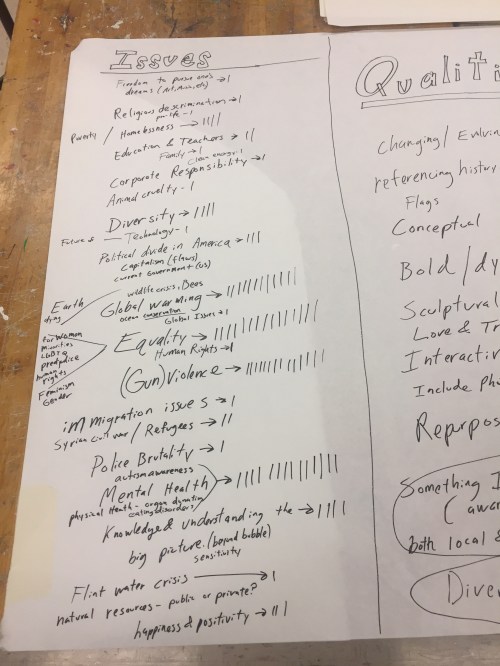 Issues
Freedom to pursue one's
dreams (Art, Music, etc) → I
Religious descrimination → I
pro life - I
Poverty / Homelessness → IIII
Education & Teachers → II
Family → I
Clean energy - I
Corporate Responsibility → I
Animal cruelty - I
Diversity → IIII
Future of Technology - I
Political divide in America → III
Capitalism (flaws)
current Government (US)
wildlife crisis, Bees
Earth
dying
Global warming →
ocean conservation
Global Issues → I
for Women
minorities
LGBTQ
predjudice
human
rights
Feminism
Gender
Equality →
Human Rights → I
(Gun) Violence →
immigration issues → I
Syrian civil war / Refugees → II
Police Brutality → I
autism awareness
Mental Health →
physical Health - organ donation
eating disorders
Knowledge & understanding the → IIII
big picture. (beyond bubble)
sensitivity
Flint water crisis → I
natural resources - public or private?
happiness & positivity → III
Qualiti
changing / Evolving
referencing history
Flags
Conceptual
Bold / dy
Sculptural
Love & Tr
Interactiv
Include Pho
Repurpos
Something I
(awar
both local &
Diver